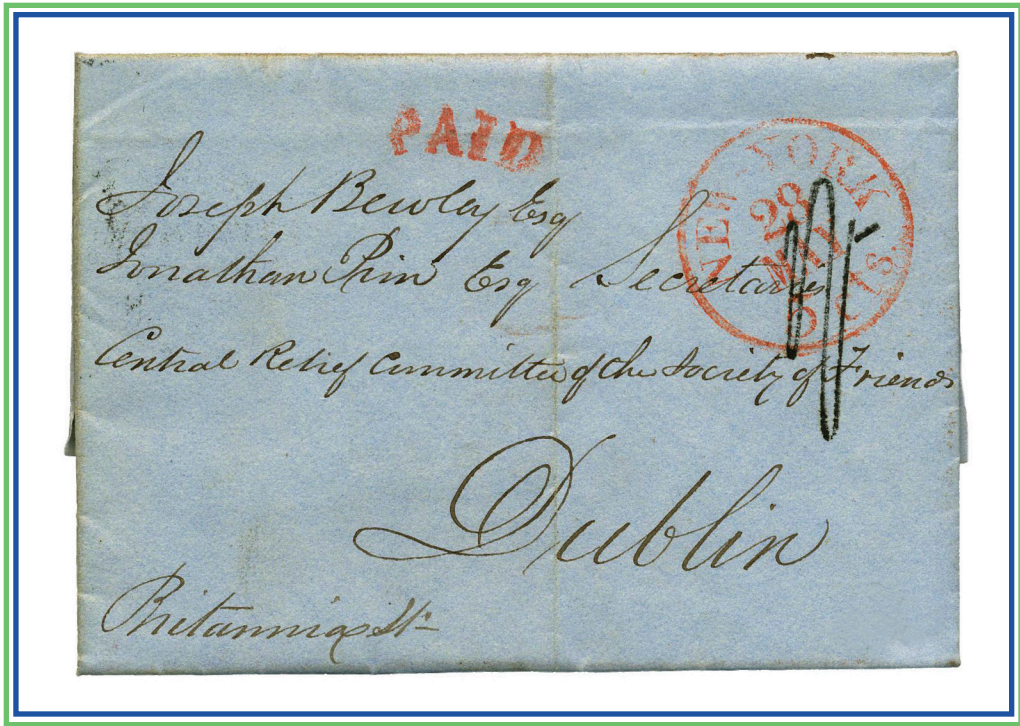 PAID
NEW YORK
28
MAY
5 cts
Joseph Bewley Esq
Jonathan Pim Esq Secretaries
Central Relief Committee of the Society of Friends
Dublin
Britannia